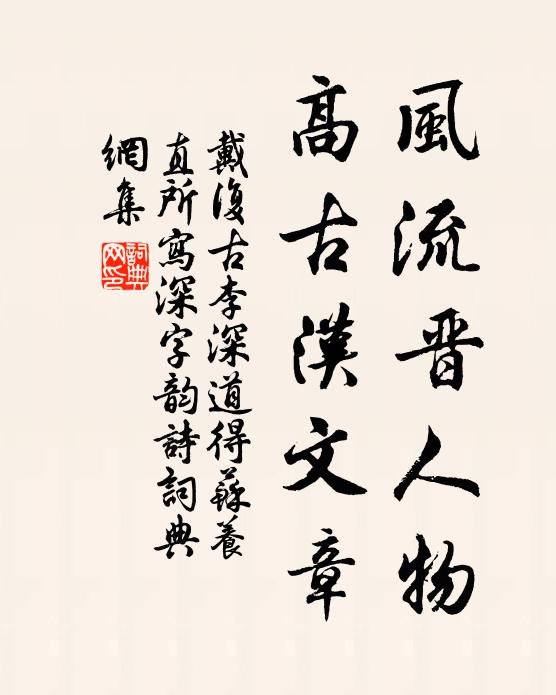 風流晋人物
高古漢文章
戴復古李深道得蘇養
直所寫深字韵詩詞典
網集
詞典網印